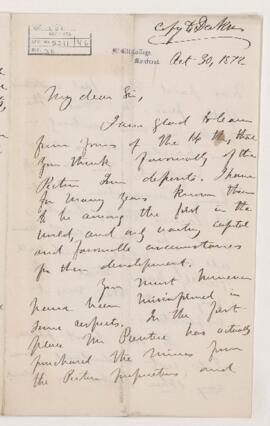 McGill College,
Montreal.
Oct 30, 1872
My dear Sir,
I am glad to learn
from yours of the 14th, that
you think favourably of the
Pictou Iron deposits. I have
for many years known them
to be among the first in the
world, and only wanting capital
and favourable circumstances
for their development.
You must however
have been misinformed in
some respects. In the first
place Mr Prentice has actually
purchased the mines from
the Pictou proprietors, and